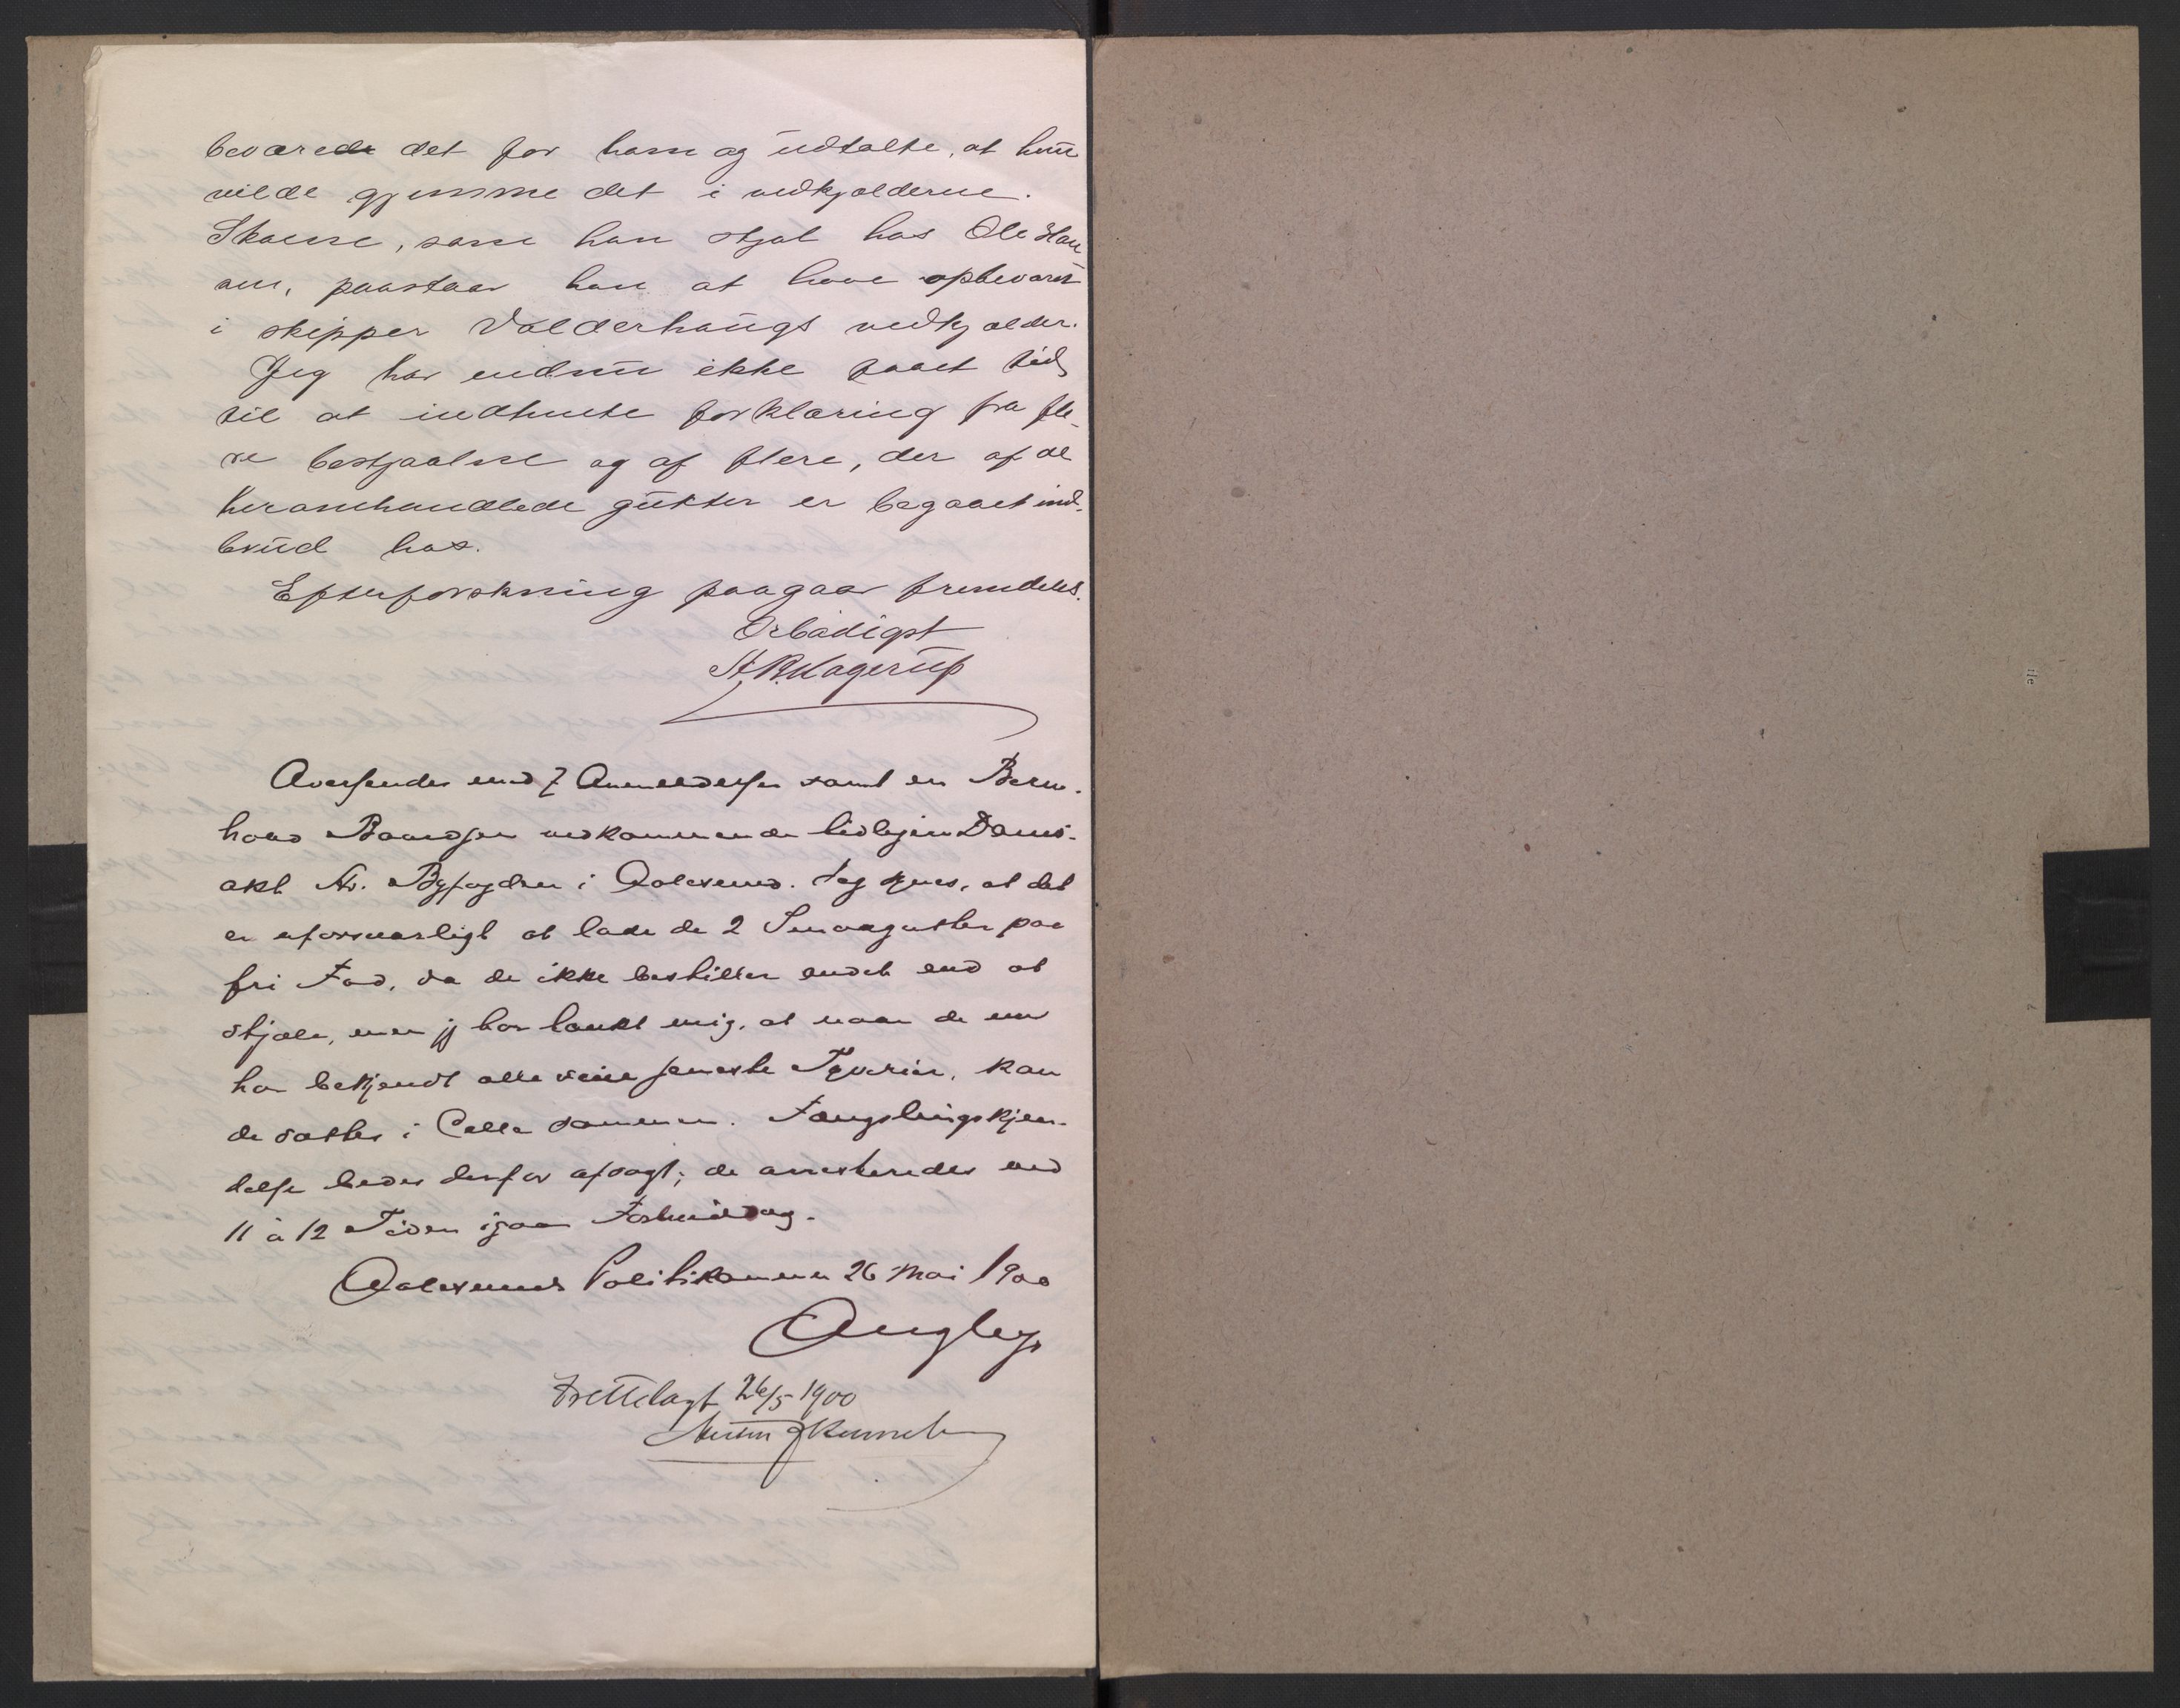 bevarede det for ham og udtalte, at hun
vilde gjemme det i vedkjælderne.
Skoene, som han stjal hos Ole Han
sen, paastaar han at have opbevaret
i skipper Valderhaugs vedkjælder.
Jeg har endnu ikke faaet tid
til at indhente forklaring fra fle-
re bestjaalne og af flere, der af de
heromhandlede gutter er begaaet ind-
brud hos.
Efterforskning paagaar fremdeles.
Ærbødigst
Oversendes med 7 Anmeldelser samt en Bern-
hard vedkommende tidligere Doms-
akt Hr. Byfogden i Aalesund. Jeg synes, at det
er uforsvarligt at lade de 2 Smaagutter paa
fri Fod, da de ikke bestiller andet end at
stjæle, men jeg har tænkt mig, at naar de nu
har bekjendt alle sine seneste Tyverier, kan
de sættes i Celle sammen. Fængslingskjen-
delse bedes derfor afsagt; de arresteredes ved
11 à 12 Tiden igaar Formiddag.
Aalesunds Politikammer 26 Mai 1900
Fremlagt 26/5 1900